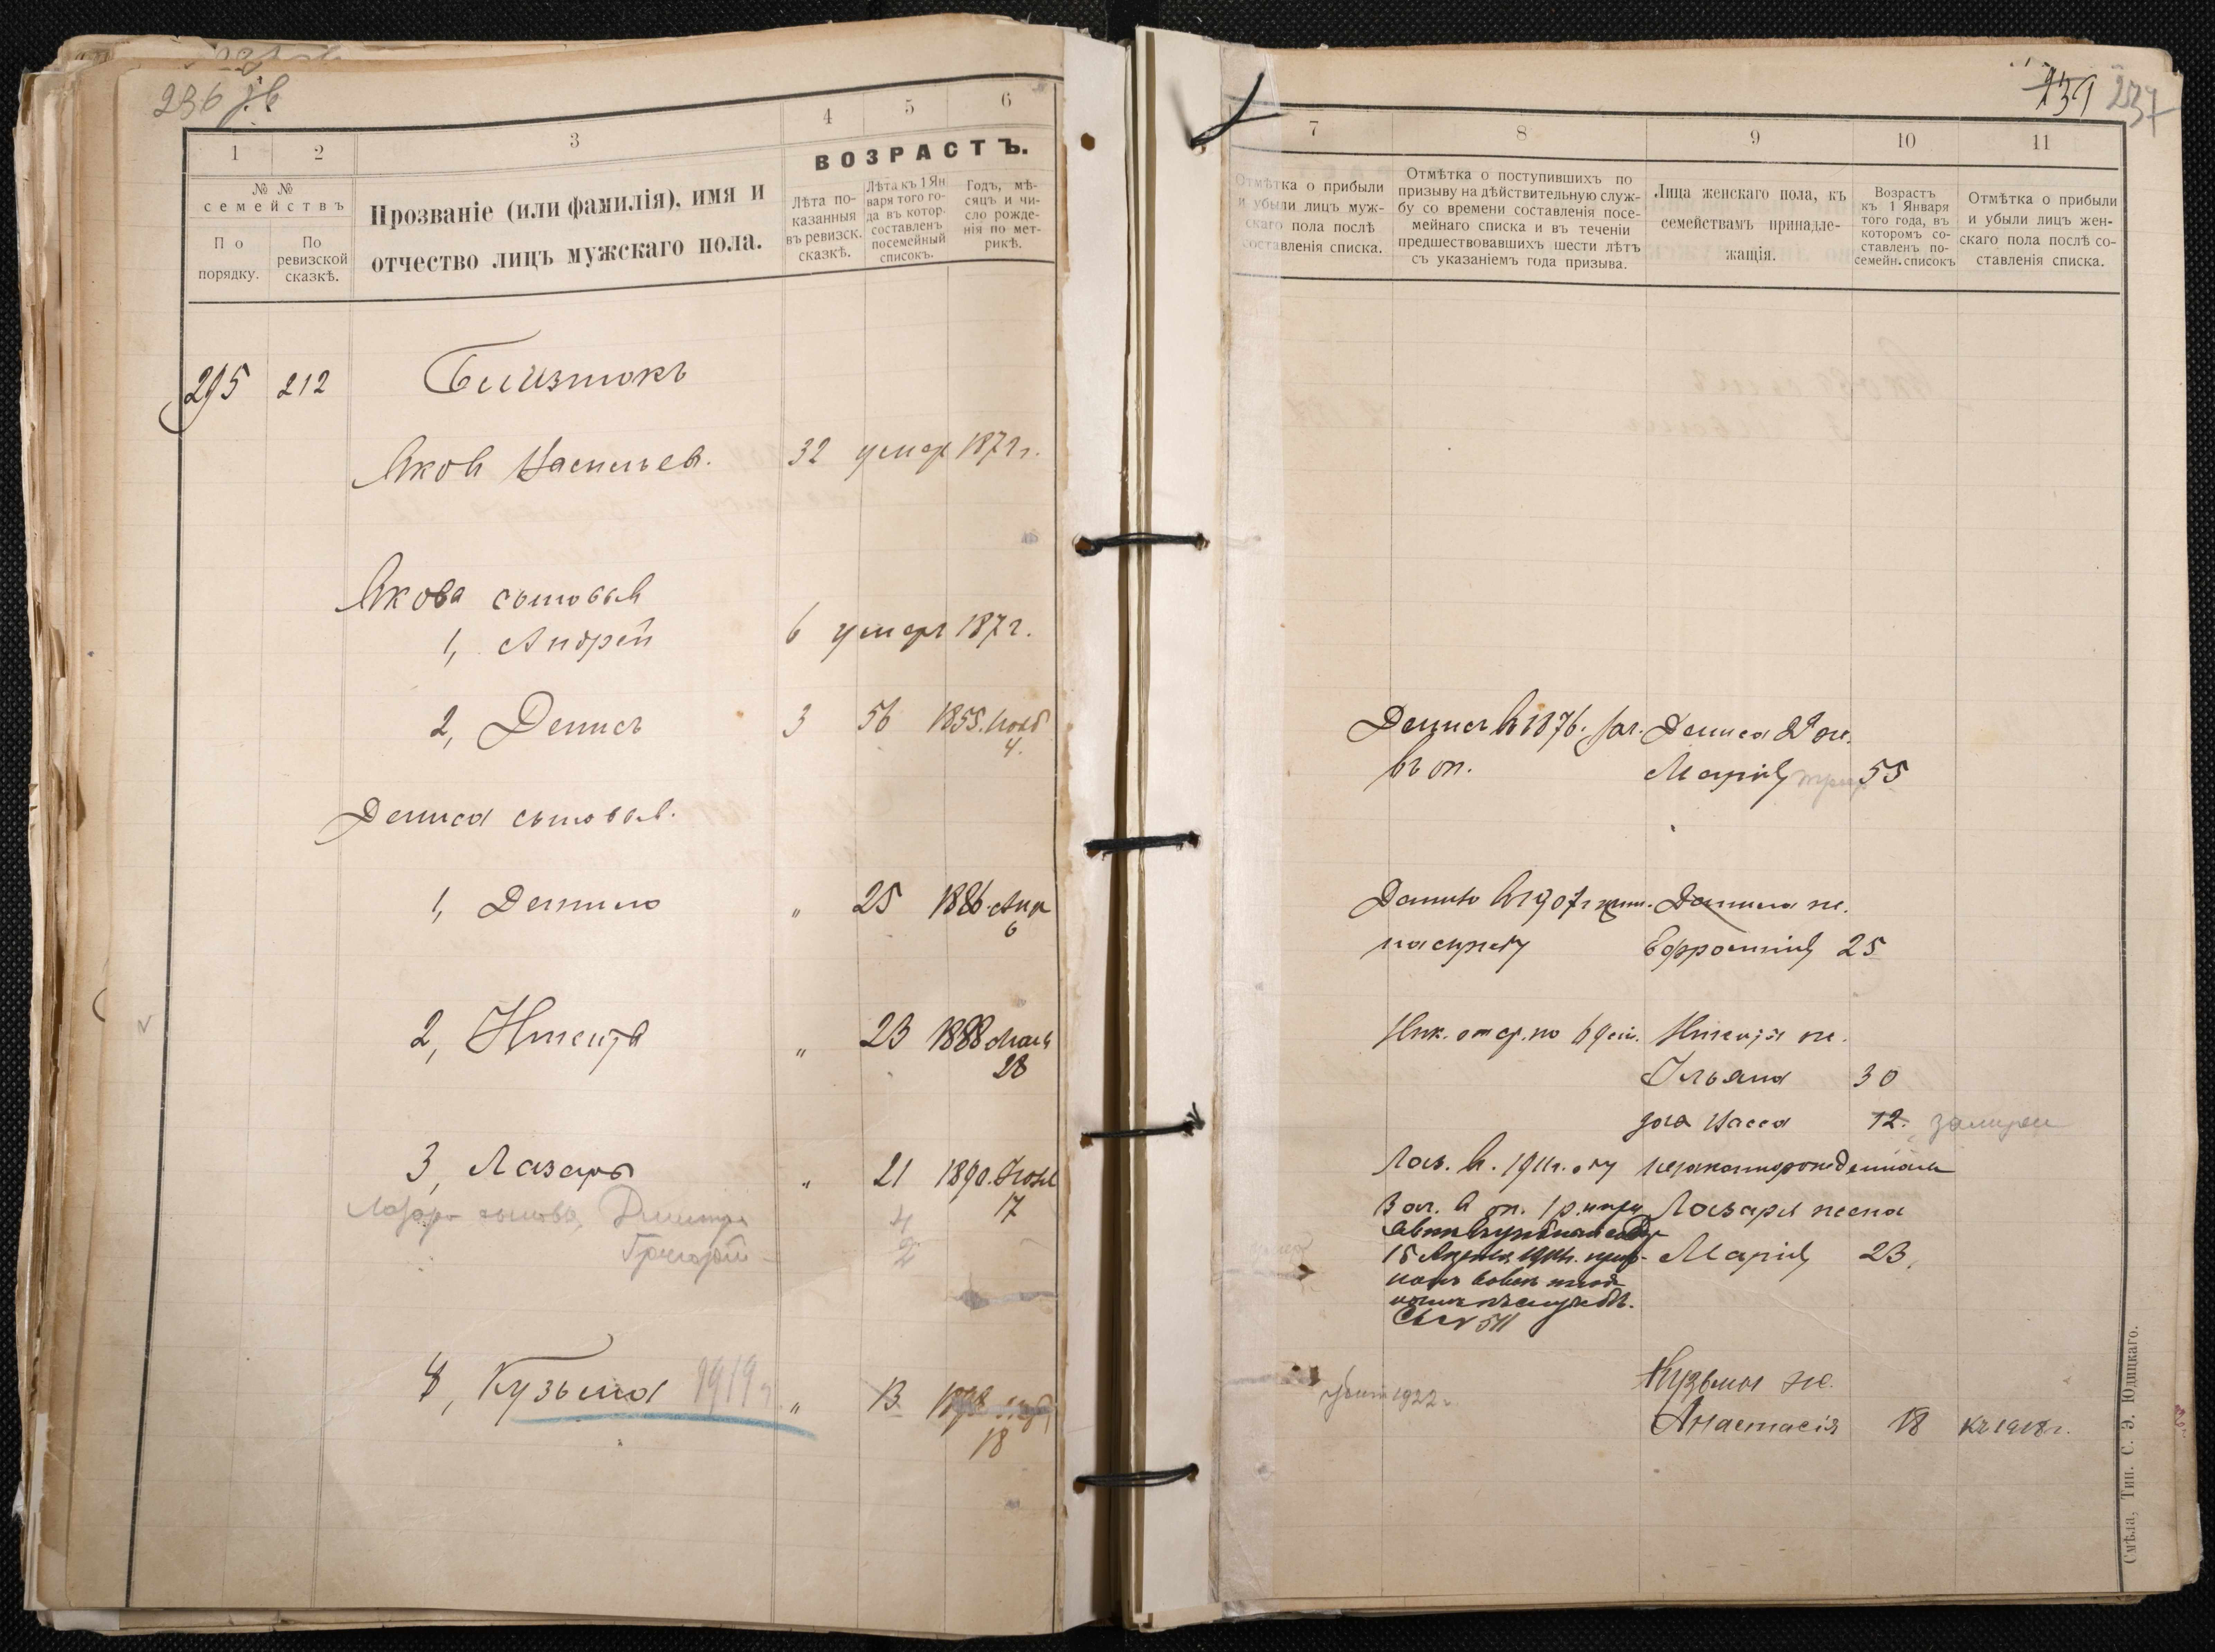 236 зв
1
2
3
4
5
6
№ №
семействъ
По порядку.
По ревизской сказкѣ.
Прозваніе (или фамилія), имя и
отчество лицъ мужскаго пола.
ВОЗРАСТЪ.
Лѣта по-
казанныя
въ ревизск.
сказкѣ.
Лѣта къ 1 Ян
варя того го-
да въ котор.
составленъ
посемейный
списокъ.
Годъ, мѣ-
сяцъ и чи-
сло рожде-
нія по мет-
рикѣ.
295 212 Близнюкъ
Яков Васильев. 32 умер 187 г.
Якова сыновья
1, Андрей 6 умеръ 187 г.
2, Денисъ 3 56 1855. Нояб
4.
Дениса сыновья.
1, Данило " 25 1886. Апр
6
2, Никита " 23 1888 Мая
28
3, Лазарь " 21 1890. Нояб
17
Лазаря сынова, Дмитро 4
Григорій 2
4, Кузьма 1919 г. " 13
18
239 237
7
8
9
10
11
Отмѣтка о прибыли
и убыли лицъ муж-
скаго пола послѣ
составленія списка.
Отмѣтка о поступившихъ по
призыву на дѣйствительную служ-
бу со времени составленія посе-
мейнаго списка и въ теченіи
предшествовавшихъ шести лѣтъ
съ указаніемъ года призыва.
Лица женскаго пола, къ
семействамъ принадле-
жащія.
Возрастъ
къ 1 Января
того года, въ
которомъ со-
ставленъ по-
семейн. списокъ
Отмѣтка о прибыли
и убыли лицъ жен-
скаго пола послѣ со-
ставленія списка.
Денисъ в 1876. зач. Дениса 2я ж.
въ оп. Марія 55
Данило в 1907 г. Данила ж.
на службу Ефросинія 25
Ник. отср. по Никиты ж.
Ульяна 30
доч Васса 12.
Лаз. в. 1911 г. незаконнорожденная
Зач. в оп. 1 р. Лазаря жена
Марія 23,
15 1914 г.
къ службѣ.
511
1922 г. Кузьмы же.
Анастасія 18 къ 1918 г.
Смѣла, Тип. С. Э. Юдицкаго.